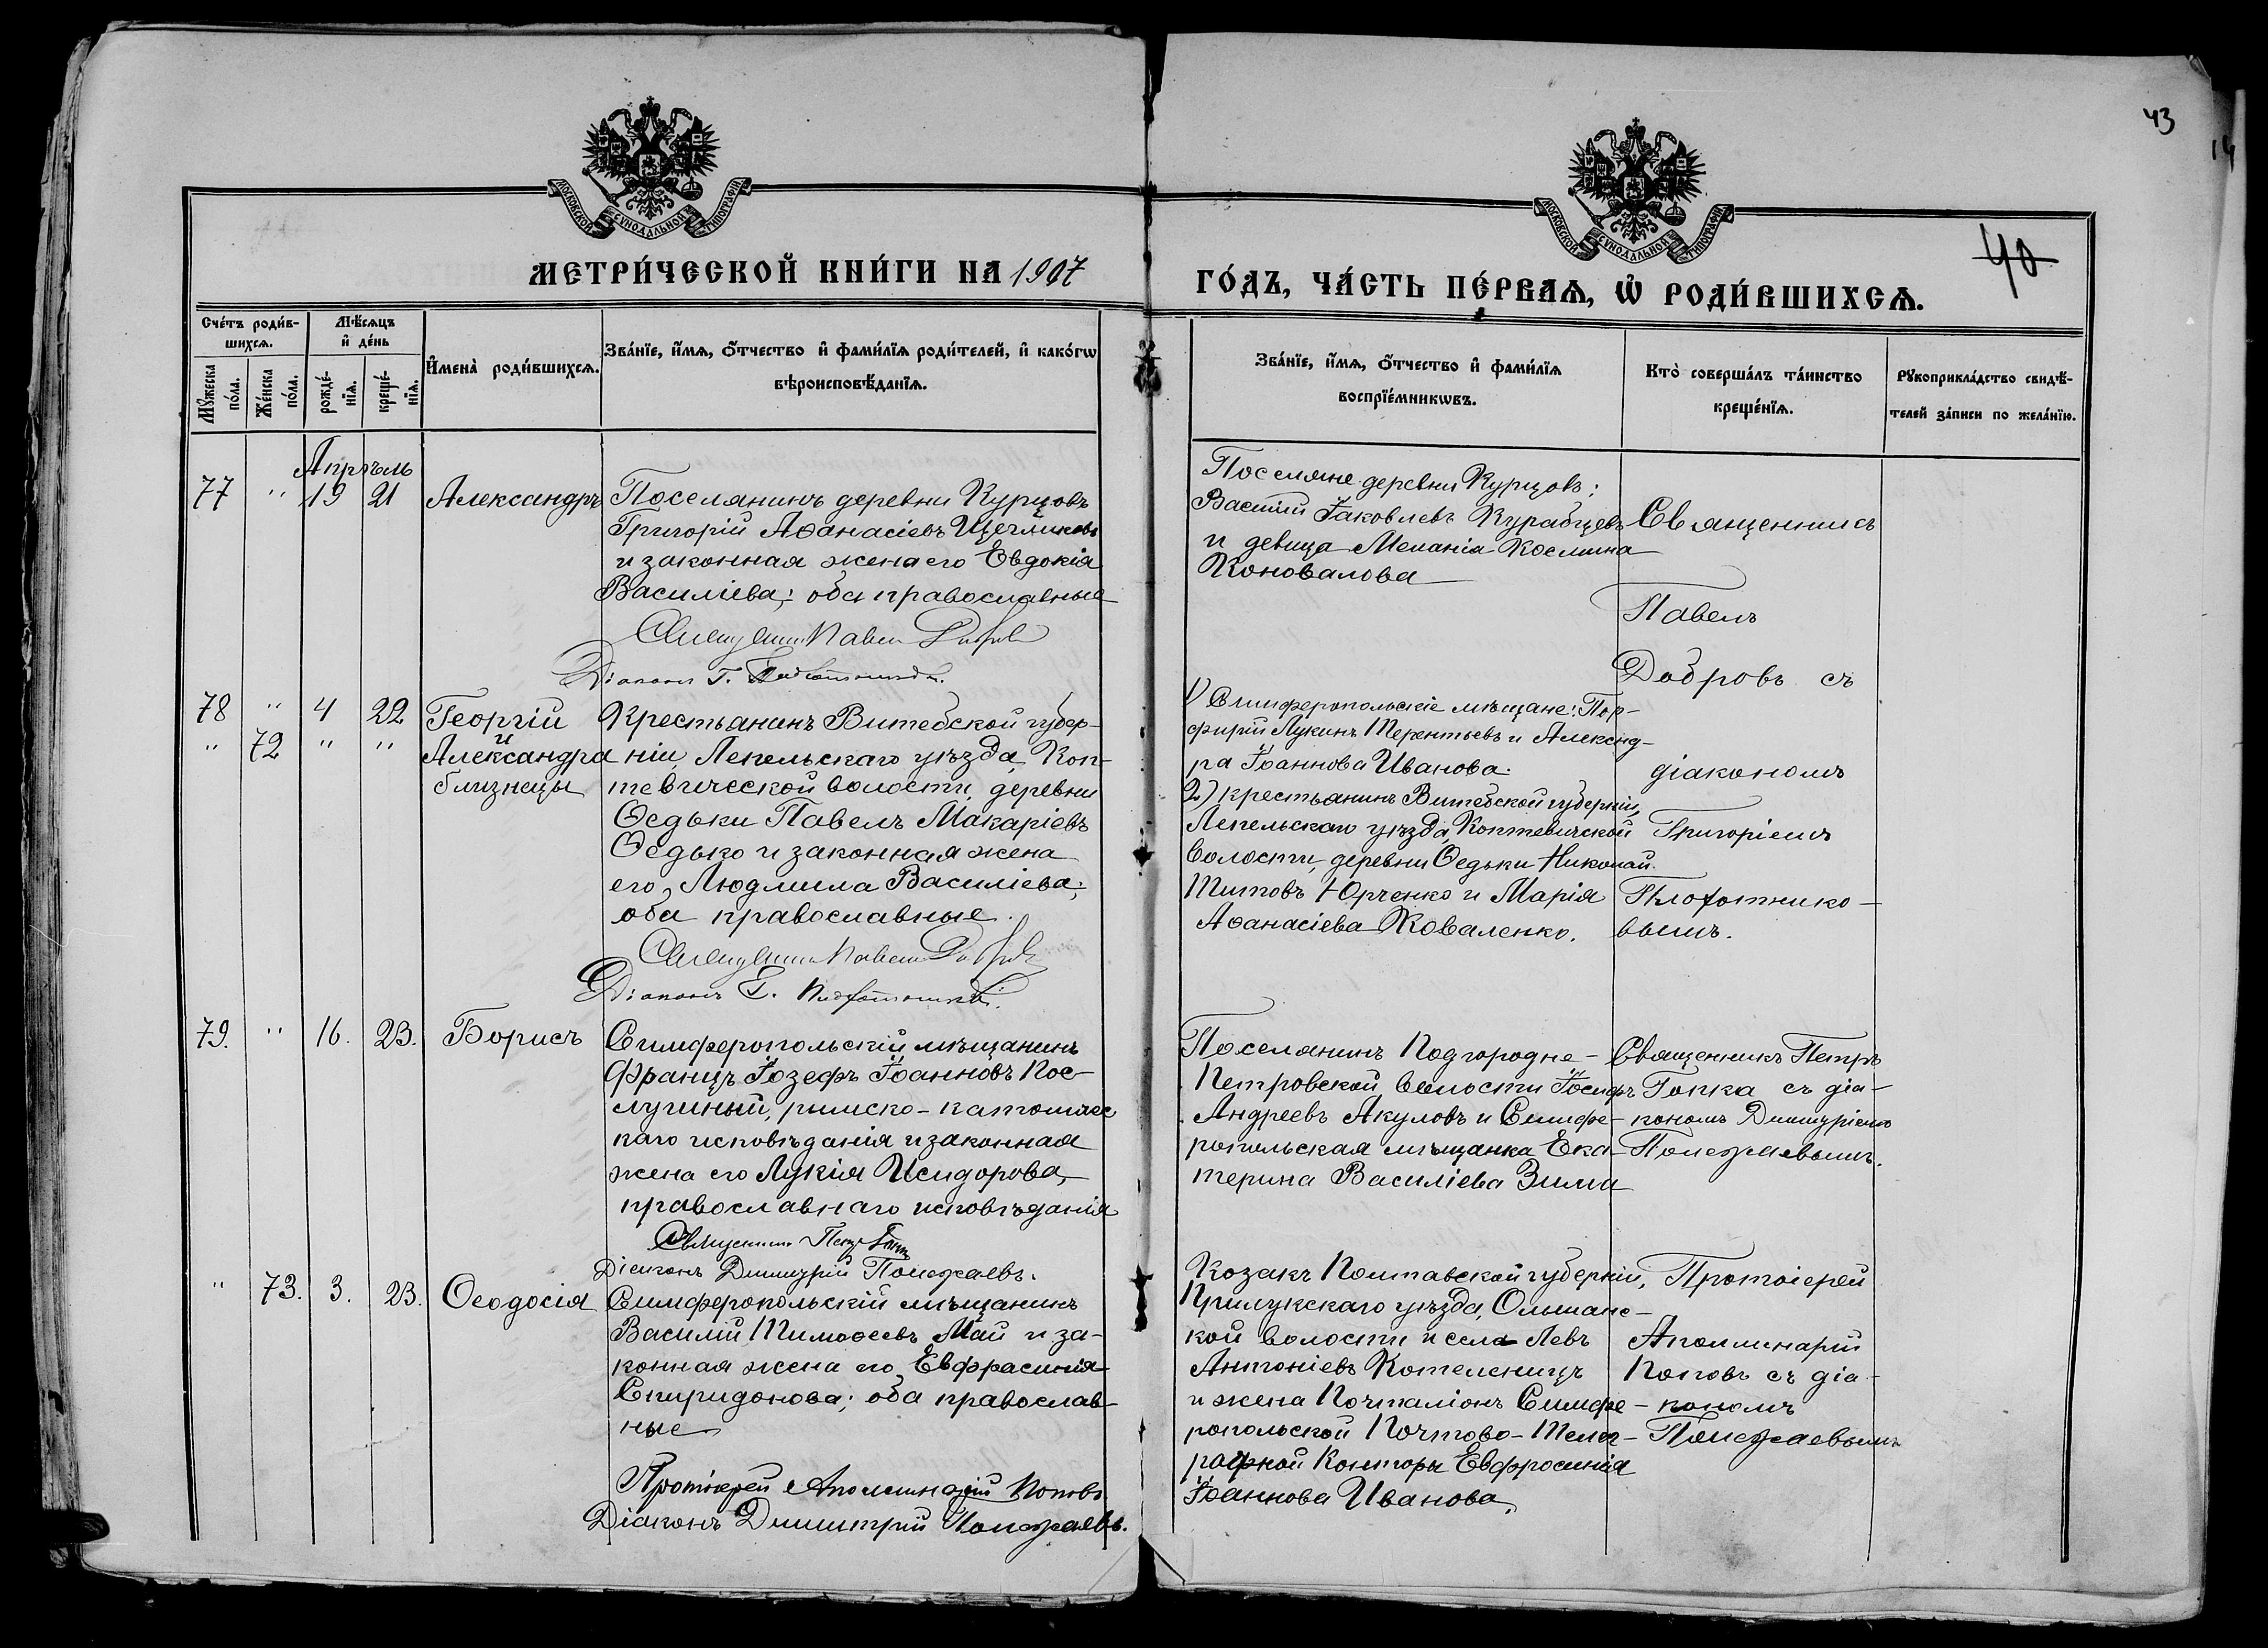 43
40
МОСКОВСКОЙ СУНОДАЛЬНОЙ ТИПОГРАФІИ
МОСКОВСКОЙ СУНОДАЛЬНОЙ ТИПОГРАФІИ
МЕТРИ́ЧЕСКОЙ КНИ́ГИ НА 1907
ГО́ДЪ, ЧА́СТЬ ПЕ́РВАѦ, Ѽ РОДИ́ВШИХСѦ.
Сче́тъ роди́в-
шихсѧ.
Мꙋжеска по́ла.
Же́нска по́ла.
Мѣ́сѧцъ
и҆ де́нь
рожде́-
нїѧ.
креще́-
нїѧ.
И҆мена̀ роди́вшихсѧ.
Зва́нїе, и҆́мѧ, ѻ҆́тчество и҆ фами́лїѧ роди́телей, и҆ како́гѡ
вѣроисповѣ́данїѧ.
Зва́нїе, и҆́мѧ, ѻ҆́тчество и҆ фами́лїѧ
воспрїе́мникѡвъ.
Кто̀ соверша́лъ та́инство
креще́нїѧ.
Рꙋкоприкла́дство свидѣ́-
телей за́писи по жела́нїю.
Апрѣль
77 " 19 21 Александръ
Поселянинъ деревни Курцовъ
Григорій Аѳанасіевъ Щегликовъ
и законная жена его Евдокія
Василіева; оба православные
Священникъ Павелъ Добровъ
Діаконъ Г.
Поселяне деревни Курцовъ:
Василій Іаковлевъ Курабцевъ
и девица Меланія Космина
Коновалова
Священникъ
Павелъ
Добровъ съ
діакономъ
Григоріемъ
вымъ.
78 " 4 22 Георгій
" 72 " " и
Александра
близнецы
Крестьянинъ Витебской губер-
ніи, Лепельскаго уѣзда, Коп-
тевической волости, деревни
Ѳедьки Павелъ Макаріевъ
Ѳедько и законная жена
его, Людмила Василіева;
оба православные.
Священникъ Павелъ Добровъ
Діаконъ Г.
1) Симферопольскіе мѣщане: Пор-
фирій Лукинъ Терентьевъ и Александ-
ра Іоаннова Иванова.
2) крестьянинъ Витебской губерніи,
Лепельскаго уѣзда, Коптевичской
волости, деревни Ѳедьки Николай
Титовъ Юрченко и Марія
Аѳанасіева Коваленко.
79. " 16. 23. Борисъ
Симферопольскій мѣщанинъ
Францъ Іозефъ Іоанновъ Пос-
лугиный, римско-католичес
каго исповѣданія и законная
жена его Лукія Исидорова,
православнаго исповѣданія
Священникъ Петръ Гопка
Діаконъ Димитрій Полежаевъ.
Поселянинъ Подгородне-
Петровской волости Іосифъ
Андреевъ Акуловъ и Симфе-
ропольская мѣщанка Ека-
терина Василіева Зима
Священникъ Петръ
Гопка съ діа-
кономъ Димитріемъ
Полежаевымъ.
" 73. 3. 23. Ѳеодосія
Симферопольскій мѣщанинъ
Василій Тимоѳеевъ Май и за-
конная жена его Евфрасинія
Спиридонова; оба православ-
ные
Протоіерей Аполлинарій Поповъ
Діаконъ Димитрій Полежаевъ.
Козакъ Полтавской губерніи,
Прилукскаго уѣзда, Ольшанс-
кой волости и села Левъ
Антоніевъ Котеленицъ
и жена Почталіонъ Симфе-
ропольской Почтово-Телег-
рафной Конторы Евфросинія
Іоаннова Иванова.
Протоіерей
Аполлинарій
Поповъ съ діа-
кономъ
Полежаевымъ